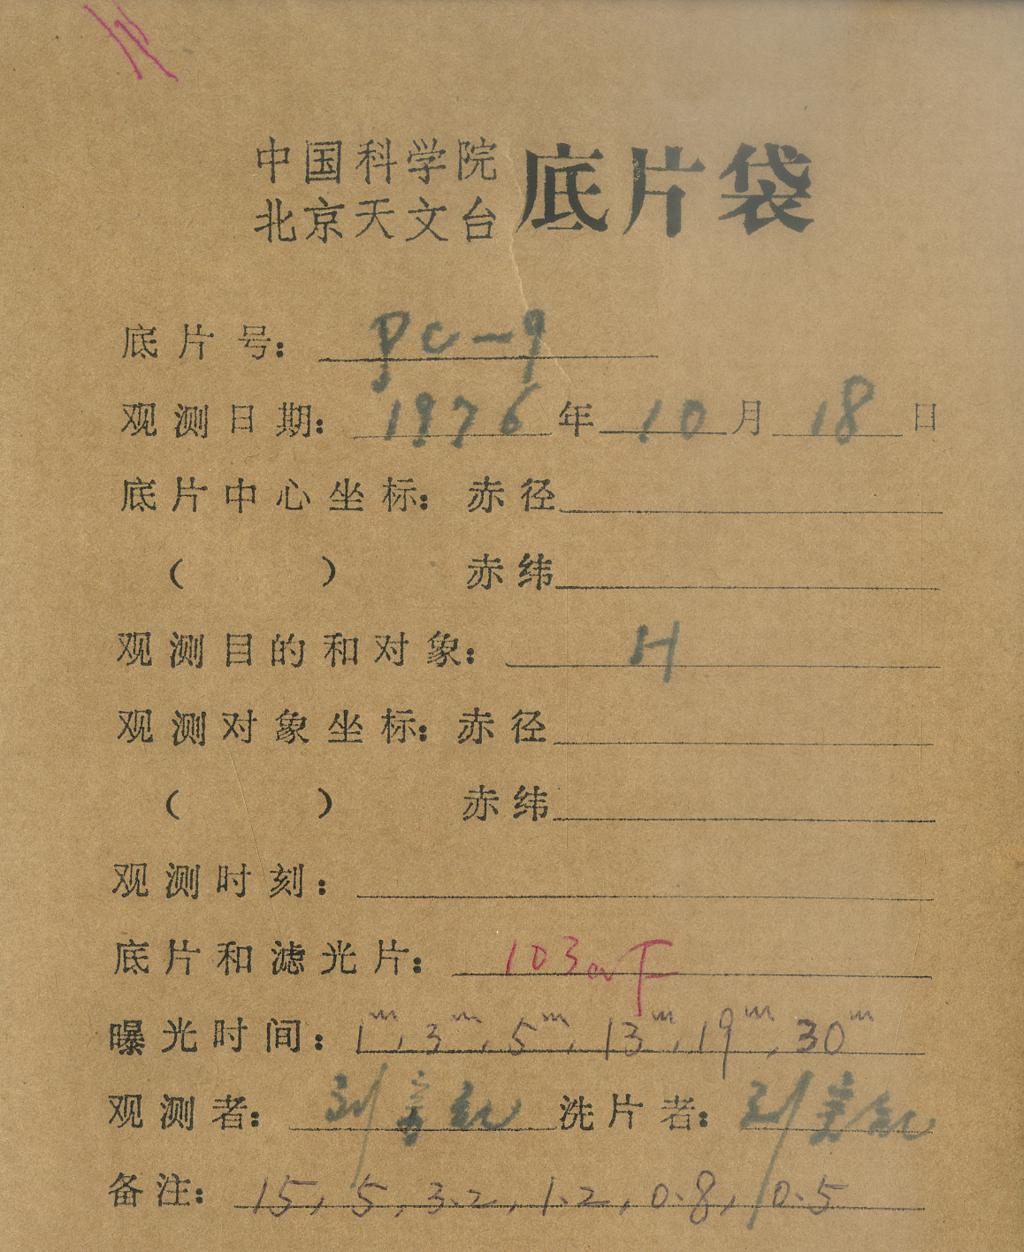 中国科学院
北京天文台 底片袋
底片号: PC-9
观测日期: 1976年10月18日
底片中心坐标: 赤径
( ) 赤纬
观测目的和对象: H
观测对象坐标: 赤径
( ) 赤纬
观测时刻:
底片和滤光片: 103aF
曝光时间: 1ᵐ, 3ᵐ, 5ᵐ, 13ᵐ, 19ᵐ, 30ᵐ
观测者: 刘 洗片者: 刘
备注: 15, 5, 3.2, 1.2, 0.8, 0.5